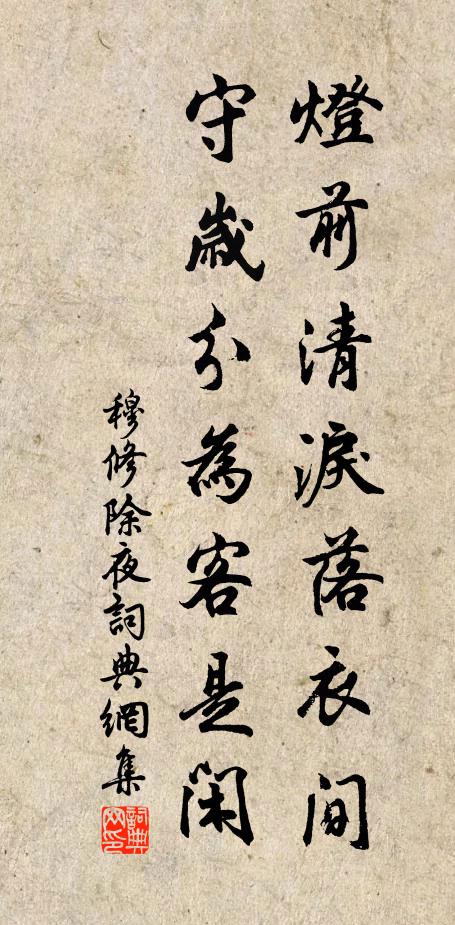 燈前清淚落衣間
守歲分為客是閑
穆修除夜詞典網集
詞典网印